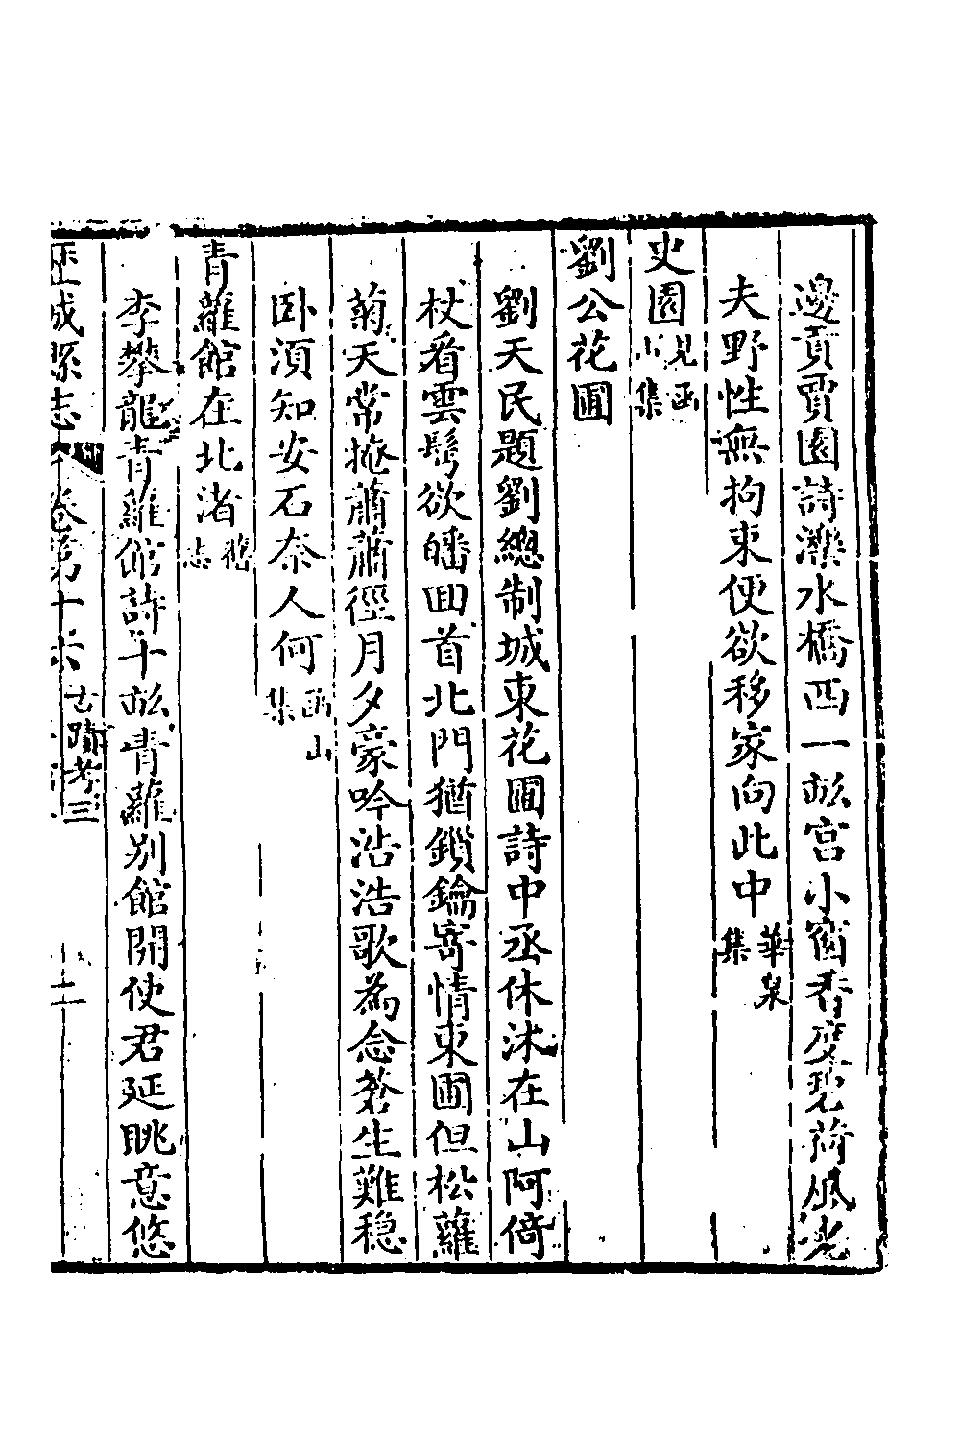 邊貢賈園詩濼水橋西一畝宮小窗香度碧荷風老
夫野性無拘束便欲移家向此中華泉集
史園見函山集
劉公花圃
劉天民題劉總制城東花圃詩中丞休沐在山阿倚
杖看雲鬢欲皤回首北門猶鎖鑰寄情東圃但松蘿
菊天常掩蕭蕭徑月夕豪吟浩浩歌為念蒼生難穩
卧須知安石奈人何函山集
青蘿館在北渚舊志
李攀龍青蘿館詩十畝青蘿別館開使君延眺意悠
歷城縣志 卷第十六 古蹟考三